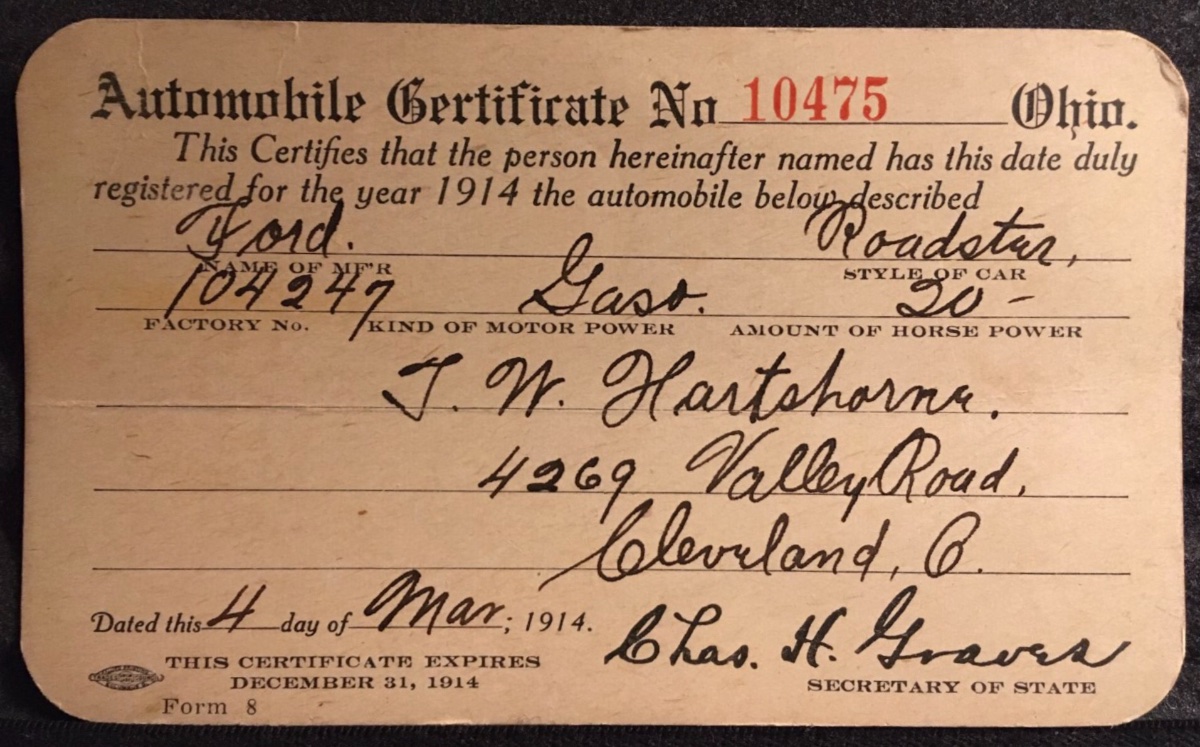 Automobile Certificate No 10475 Ohio.
This Certifies that the person hereinafter named has this date duly
registered for the year 1914 the automobile below described
Ford. Roadster,
NAME OF MF'R STYLE OF CAR
104247 Gaso. 20-
FACTORY No. KIND OF MOTOR POWER AMOUNT OF HORSE POWER
T. W. Hartshorne.
4269 Valley Road,
Cleveland, O.
Dated this 4 day of Mar, 1914.
Chas. H. Graves
THIS CERTIFICATE EXPIRES
DECEMBER 31, 1914
SECRETARY OF STATE
Form 8